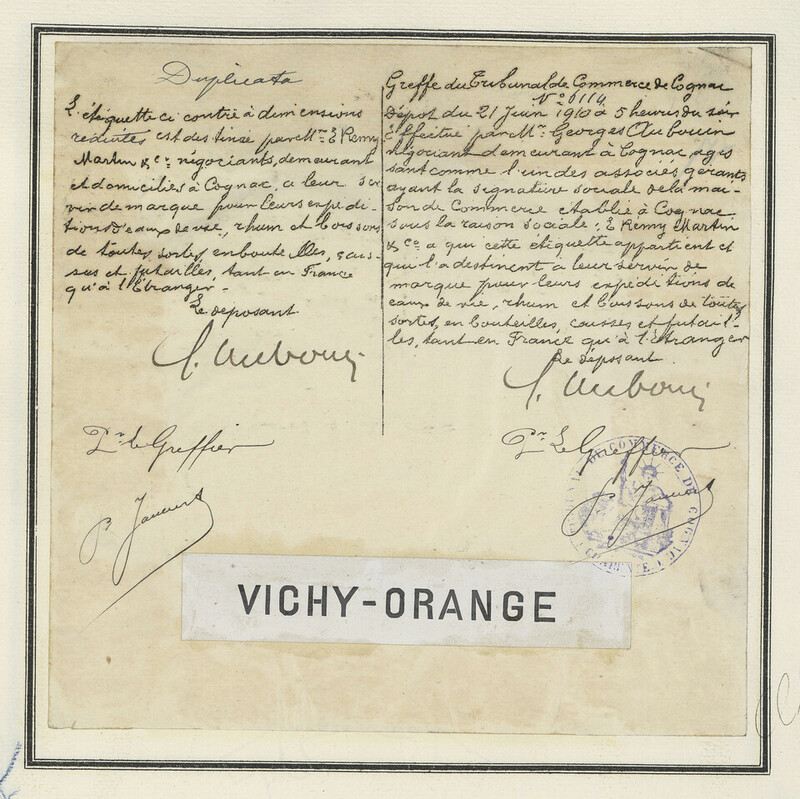 Duplicata
L'étiquette ci contre à dimensions
reduites est destinée par Mrs E Remy
Martin & Co négociants, demeurant
et domiciliés à Cognac, a leur ser
vir de marque pour leurs expedi-
tions d'eaux de vie, rhum et boissons
de toutes sortes, en bouteilles, cais-
ses et futailles, tant en France
qu'à l'Étranger.-
Le deposant
G. Aubouin
Pr le Greffier
Greffe du Tribunal de Commerce de Cognac
No 6114
Dépot du 21 Juin 1910 à 5 heures du soir
Effectué par Mr Georges Aubouin
négociant demeurant à Cognac, agis
sant comme l'un des associés gérants
ayant la signature sociale de la mai-
son de Commerce établie à Cognac
sous la raison sociale: E Remy Martin
& Co a qui cette étiquette appartient et
qui l'a destinent à leur servir de
marque pour leurs expéditions de
eaux de vie, rhum et boissons de toutes
sortes, en bouteilles, caisses et futail-
les, tant en France qu'à l'étranger
Le déposant
G. Aubouin
Pr Le Greffier
DE COMMERCE DE COGNAC
VICHY-ORANGE